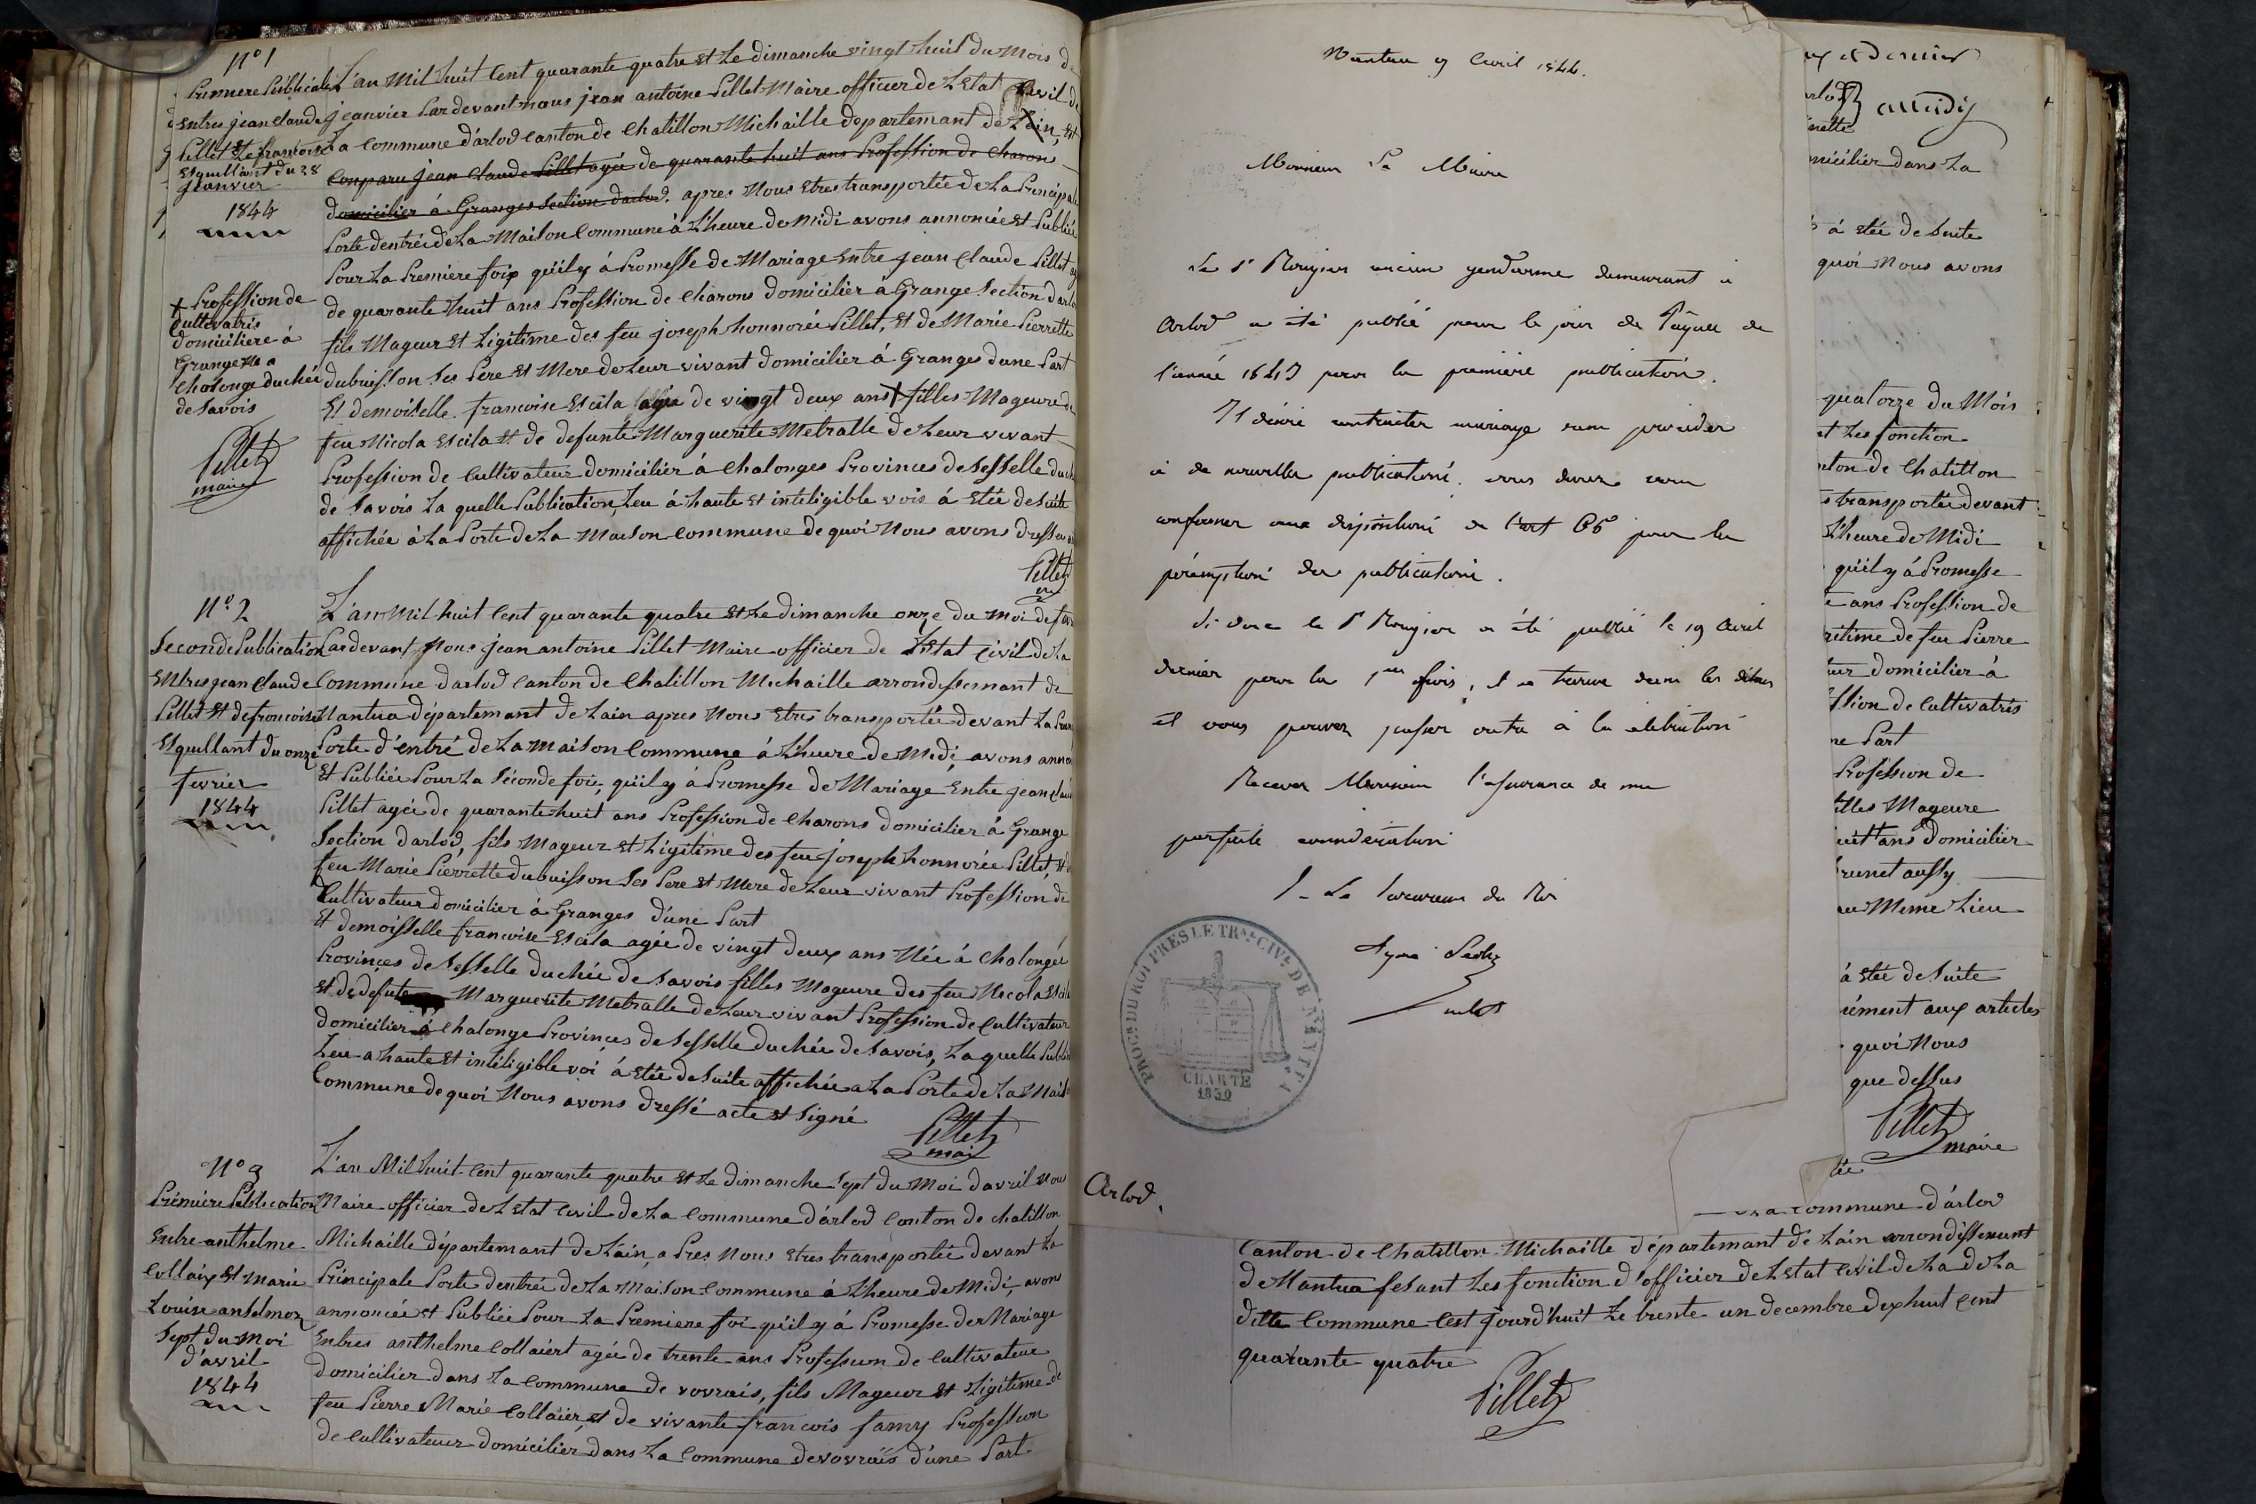 N° 1
Premiere Publication
Entres jean Claude
Pillet Et francoise
Esquillant du 28
Jeanvier
1844
L'an Mil huit Cent quarante quatre Et Le dimanche vingt huit du Mois de
jeanvier Pardevant nous jean antoine Pillet Maire officier de L'Etat Civil de
La Commune d'arlod Canton de Chatillon Michaille departemant de Lain, Et
Comparu jean Claude Pillet agée de quarante huit ans Profession de Charon
domicilier á Granges Section darlod. apres Nous Etres transportée de La Principale
Porte dentrée de La Maison Commune á L'heure de Midi avons annoncée Et Publiée
Pour La Premiere foix quil y á Promesse de Mariage Entre jean Claude Pillet agé
de quarante huit ans Profession de Charons domicilier a Grange Section darlod
fils Mageur Et Ligitime des feu joseph honnorée Pillet, Et de Marie Pierrette
dubuisson Ses Pere Et Mere de Leur vivant domicilier á Granges dune Part
Et demoiselle francoise Escila agée de vingt deux ans + filles Mageure de
feu Nicola Escila Et de defunte Marguerite Metralle de Leur vivant
Profession de Cultivateur domicilier á Chalonges Provinces de Seselle duché
de Savois La quelle Publication, Leu á haute Et inteligible vois á Etée de Suite
affichée á La Porte de La Maison Commune de quoi Nous avons dressé
Pillet
+ Profession de
Cultivatris
domiciliere á
Grange Née a
Chalonge duchée
de Savois
Pillet
maire
N° 2
Seconde Publication
Entres jean Claude
Pillet Et de francoise
Esquillant du onze
fevrier
1844
L'an Mil huit Cent quarante quatre Et Le dimanche onze du moi de
Pardevant Nous jean antoine Pillet Maire officier de L'Etat Civil de La
Commune darlod Canton de Chatillon Michaille arrondissemant de
Nantua département de Lain apres Nous Etres transportée devant La
Porte d'entré de La Maison Commune á L'heure de Midi, avons
Et Publiée Pour La Séconde foi, quil y á Promesse de Mariage Entre jean Claude
Pillet agée de quarante huit ans Profession de Charons domicilier á Grange
Section darlod, fils Mageur Et Ligitime des feu joseph honnorée Pillet, Et
feu Marie Pierrette dubuisson Ses Pere Et Mere de Leur vivant Profession de
Cultivateur domicilier á Granges d'une Part
Et demoisselle francoise Escila agée de vingt deux ans Née á Chalongée
Provinces de Sesselle duchée de Savois filles Mageure des feu Nicola Escila
et de defute Marguerite Metralle de Leur vivant Profession de Cultivateur
domicilier á Chalonge Provinces de Sesselle duchée de Savois, La quelle
Leu a haute Et inteligible voi á Etée de Suite affichée a La Porte de La
Commune de quoi Nous avons dressé acte Et Signé
Pillet
maire
N° 3
Prémiere Publication
Entre anthelme
Collaix Et Marie
Louise anselmoz
Sept du Moi
d'avril
1844
L'an Mil huit Cent quarante quatre Et Le dimanche Sept du Moi davril Nous
Maire officier de L'Etat Civil de La Commune d'árlod Conton de chatillon
Michaille département de Láin, a Pres Nous Etres transportée devant La
Principale Porte dentrée de La Maison Commune á L'heure de Midi, avons
annoncée et Publiée Pour La Premiere foi quil y á Promesse der Mariage
Entres anthelme Collaiert agée de trente ans Profession de Cultivateur
domicilier dans La Commune de vovrais, fils Mageur Et Ligitime de
feu Pierre Marie Collaier, et de vivante francois famy Profession
de Cultivateur domicilier dans La Commune de vovrais d'une Part
Nantua 9 Avril 1844.
Monsieur Le Maire
Le Sr Rougier ancien gendarme demeurant à
Arlod a été publié pour le jour de Pâques de
l'année 1843 pour la première publication.
Il désire contracter mariage sans procéder
à de nouvelles publications. vous devez vous
conformer aux dispositions de l'art 65 pour la
péremption des publications.
Si donc le Sr Rougier a été publié le 19 Avril
dernier pour la 1ere fois, il se trouve dans les délais
et vous pouvez passer outre à la célébration
Recevez Monsieur l'assurance de ma
parfaite considération
Le Procureur du Roi
PROC. DU ROI PRES LE TR. CIV. DE NANTUA
CHARTE
1830
Arlod.
et Dernier
micilier dans La
á Etée de Suite
quoi Nous avons
quatorze du Mois
et Les fonction
de Chatillon
transportée devant
L'heure de Midi
quil y á Promesse
ans Profession de
de feu Pierre
domicilier á
de Cultivatris
Part
Profession de
filles Mageure
ans domicilier
aussy
Meme Lieu
á Etée de Suite
aux articles
quoi Nous
que dessus
Pillet
maire
La Commune d'árlod
Canton de Chatillon Michaille département de Lain arrondissemunt
de Nantua fesant Les fonction d'officier de L'Etat Civil de La de La
ditte Commune Cest jourd'huit Le trente un decembre dix huit Cent
quarante quatre
Pillet